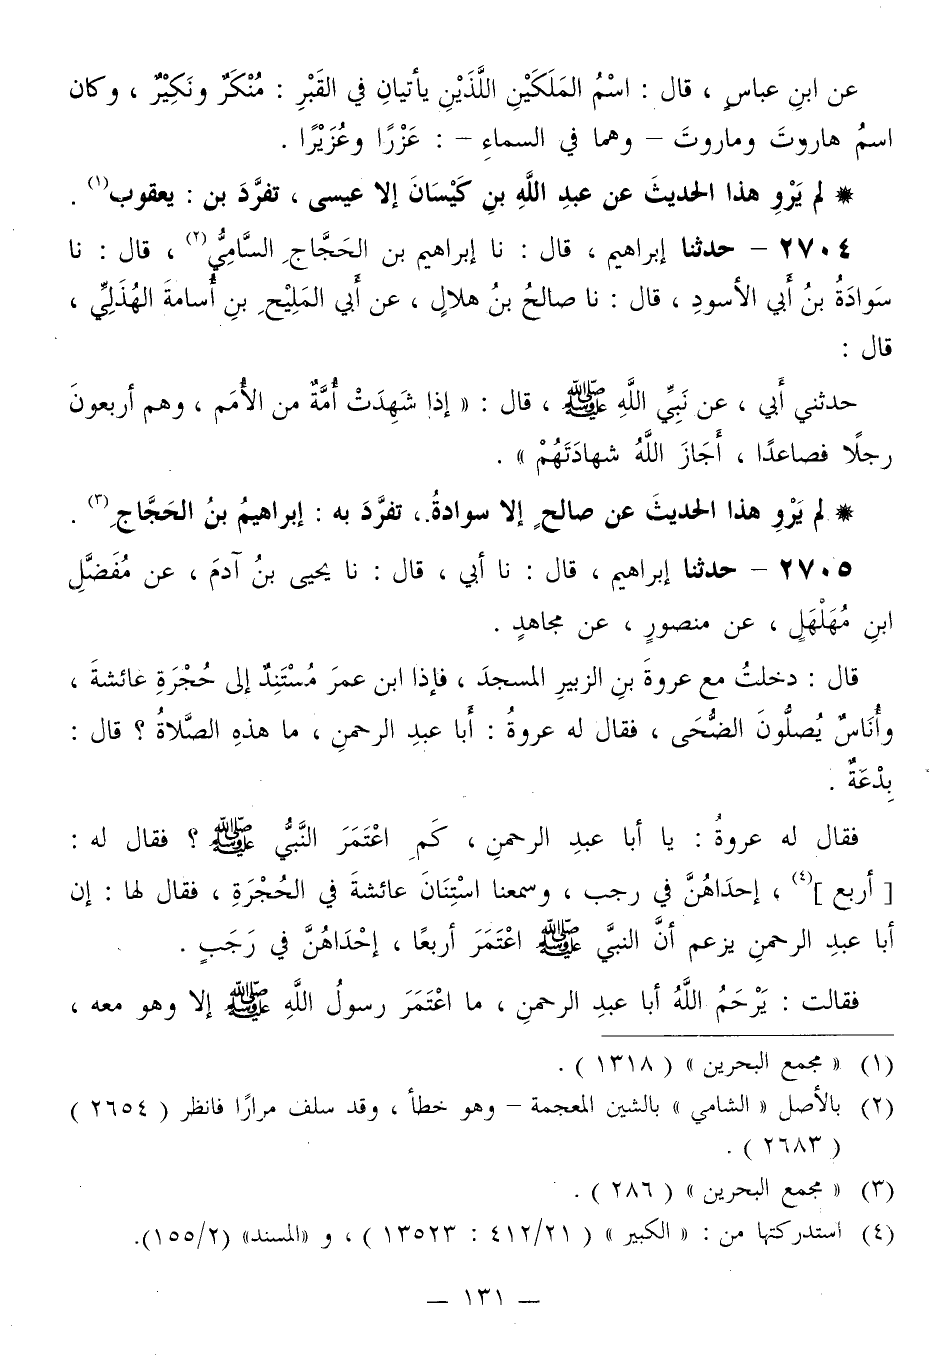 عن ابنِ عباسٍ ، قال : اسْمُ المَلَكَيْنِ اللَّذَيْنِ يأتيانِ في القَبْرِ : مُنْكَرٌ ونَكِيْرٌ ، وكان
اسمُ هاروتَ وماروتَ – وهما في السماءِ – : عَزْرًا وعُزَيْرًا .
* لم يَرْوِ هذا الحديثَ عن عبدِ اللَّهِ بنِ كَيْسَانَ إلا عيسى ، تفرَّدَ بن : يعقوب(١) .
٢٧٠٤ – حدثنا إبراهيم ، قال : نا إبراهيم بن الحَجَّاجِ السَّامِيُّ(٢) ، قال : نا
سَوادَةُ بنُ أَبي الأسودِ ، قال : نا صالحُ بنُ هلالٍ ، عن أَبي المَلِيْحِ بنِ أُسامةَ الهُذَلِيِّ ،
قال :
حدثني أَبي ، عن نَبِيِّ اللَّهِ ﷺ ، قال : « إذا شَهِدَتْ أُمَّةٌ من الأُمَم ، وهم أربعونَ
رجلًا فصاعدًا ، أَجَازَ اللَّهُ شهادَتَهُمْ » .
* لم يَرْوِ هذا الحديثَ عن صالحٍ إلا سوادةُ ، تفرَّدَ به : إبراهيمُ بنُ الحَجَّاجِ(٣) .
٢٧٠٥ – حدثنا إبراهيم ، قال : نا أبي ، قال : نا يحيى بنُ آدمَ ، عن مُفَضَّلِ
ابنِ مُهَلْهَلٍ ، عن منصورٍ ، عن مجاهدٍ .
قال : دخلتُ مع عروةَ بنِ الزبيرِ المسجدَ ، فإذا ابن عمرَ مُسْتَنِدٌ إلى حُجْرَةِ عائشةَ ،
وأُنَاسٌ يُصلُّونَ الضُّحَى ، فقال له عروةُ : أَبا عبدِ الرحمنِ ، ما هذهِ الصَّلاةُ ؟ قال :
بِدْعَةٌ .
فقال له عروةُ : يا أبا عبدِ الرحمنِ ، كَمِ اعْتَمَرَ النَّبيُّ ﷺ ؟ فقال له :
[ أربع ](٤) ، إحدَاهُنَّ في رجب ، وسمعنا اسْتِنَانَ عائشةَ في الحُجْرَةِ ، فقال لها : إن
أبا عبدِ الرحمنِ يزعم أنَّ النبيَّ ﷺ اعْتَمَرَ أربعًا ، إحْدَاهُنَّ في رَجَبٍ .
فقالت : يَرْحَمُ اللَّهُ أبا عبدِ الرحمنِ ، ما اعْتَمَرَ رسولُ اللَّهِ ﷺ إلا وهو معه ،
(١) « مجمع البحرين » ( ١٣١٨ ) .
(٢) بالأصل « الشامي » بالشين المعجمة – وهو خطأ ، وقد سلف مرارًا فانظر ( ٢٦٥٤ )
( ٢٦٨٣ ) .
(٣) « مجمع البحرين » ( ٢٨٦ ) .
(٤) استدركتها من : « الكبير » ( ٤١٢/٢١ : ١٣٥٢٣ ) ، و «المسند» (١٥٥/٢).
– ١٣١ –